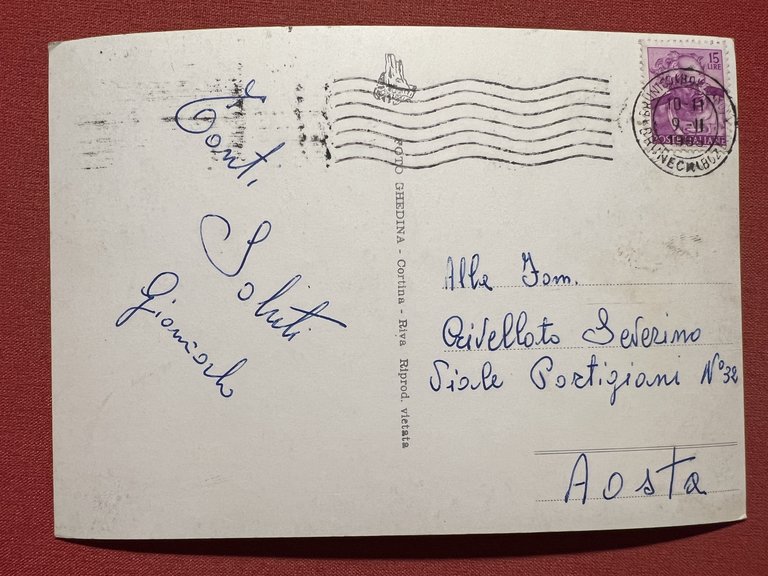 Tanti
Saluti
Giancarlo
FOTO GHEDINA - Cortina - Riva Riprod. vietata
15
LIRE
POSTE ITALIANE
10-11
9-11
Alla Fam.
Rivellato Severino
Viale Partigiani N° 32
Aosta